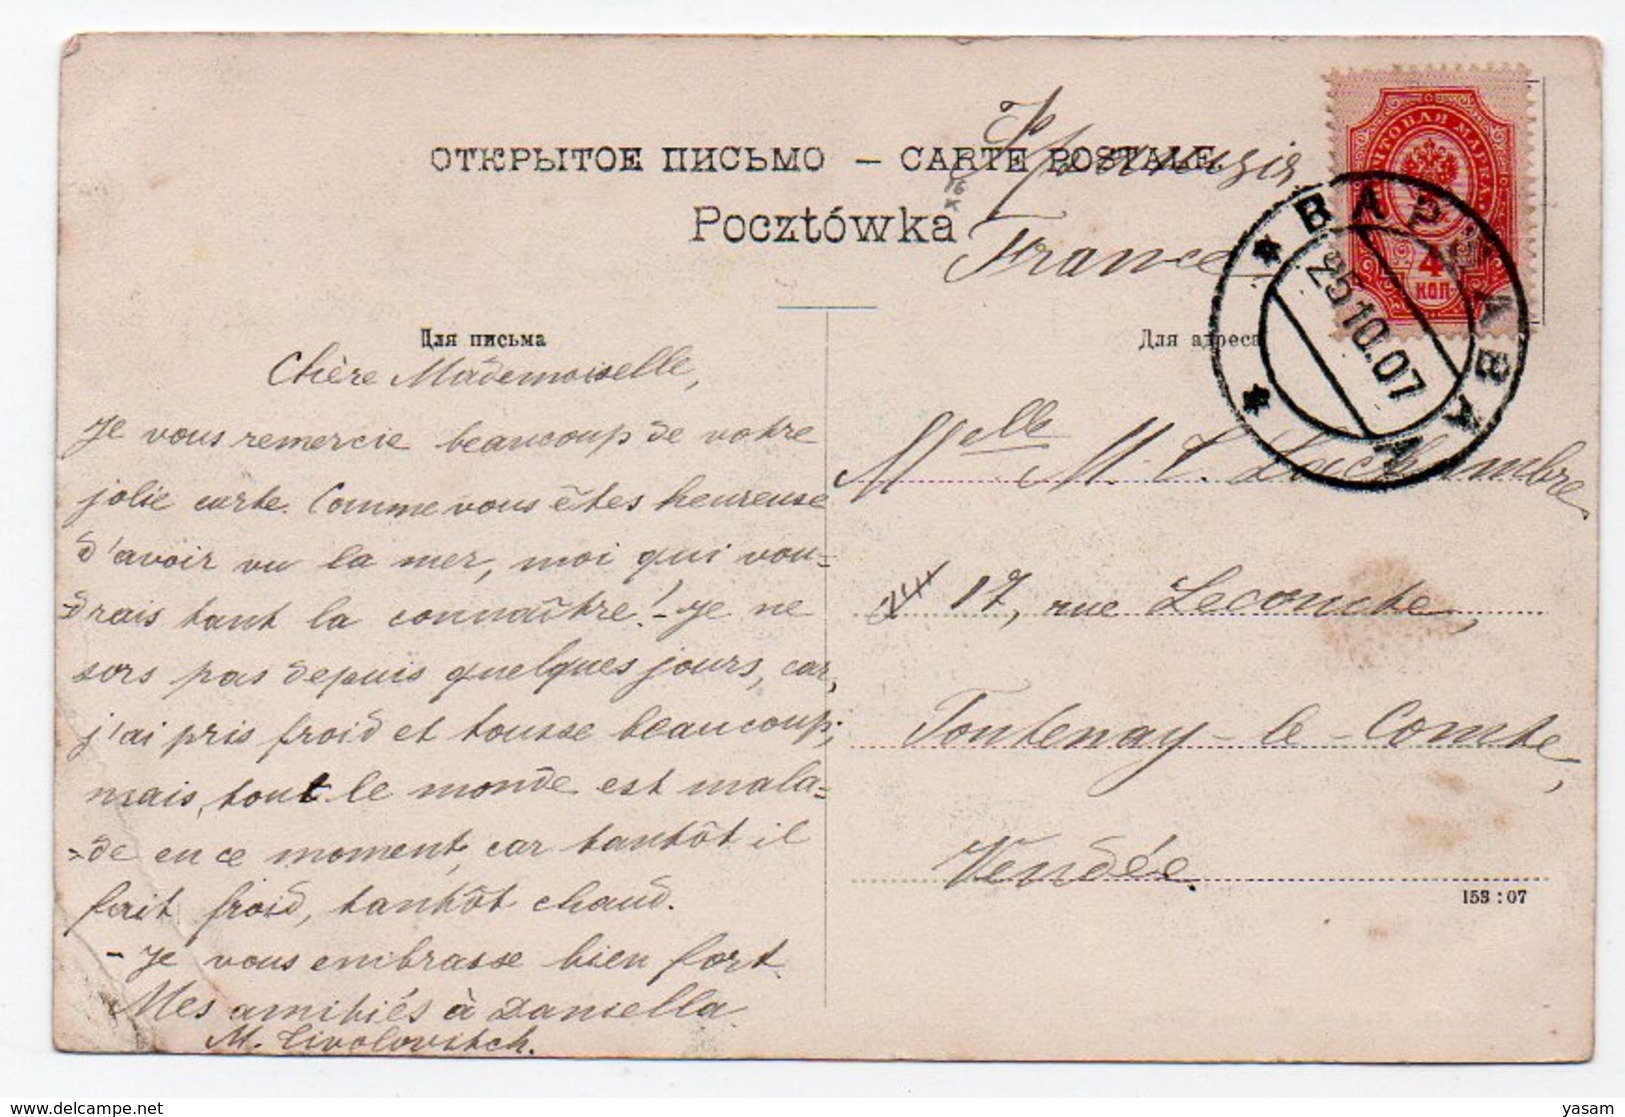 ОТКРЫТОЕ ПИСЬМО — CARTE POSTALE.
Pocztówka
Франція
France
ПОЧТОВАЯ МАРКА
4
КОП.
ВАРШАВА
25.10.07
Для письма
Chère Mademoiselle,
Je vous remercie beaucoup de votre
jolie carte. Comme vous êtes heureuse
d'avoir vu la mer, moi qui vou=
=drais tant la connaître! - Je ne
sors pas depuis quelques jours, car,
j'ai pris froid et tousse beaucoup;
mais, tout le monde est mala=
=de en ce moment, car tantôt il
fait froid, tantôt chaud.
- Je vous embrasse bien fort.
Mes amitiés à Daniella
Для адреса
Melle M. L. Duchambre
17, rue Lecointe,
Fontenay-le-Comte,
Vendée.
153:07
https://www.delcampe.net
yasam